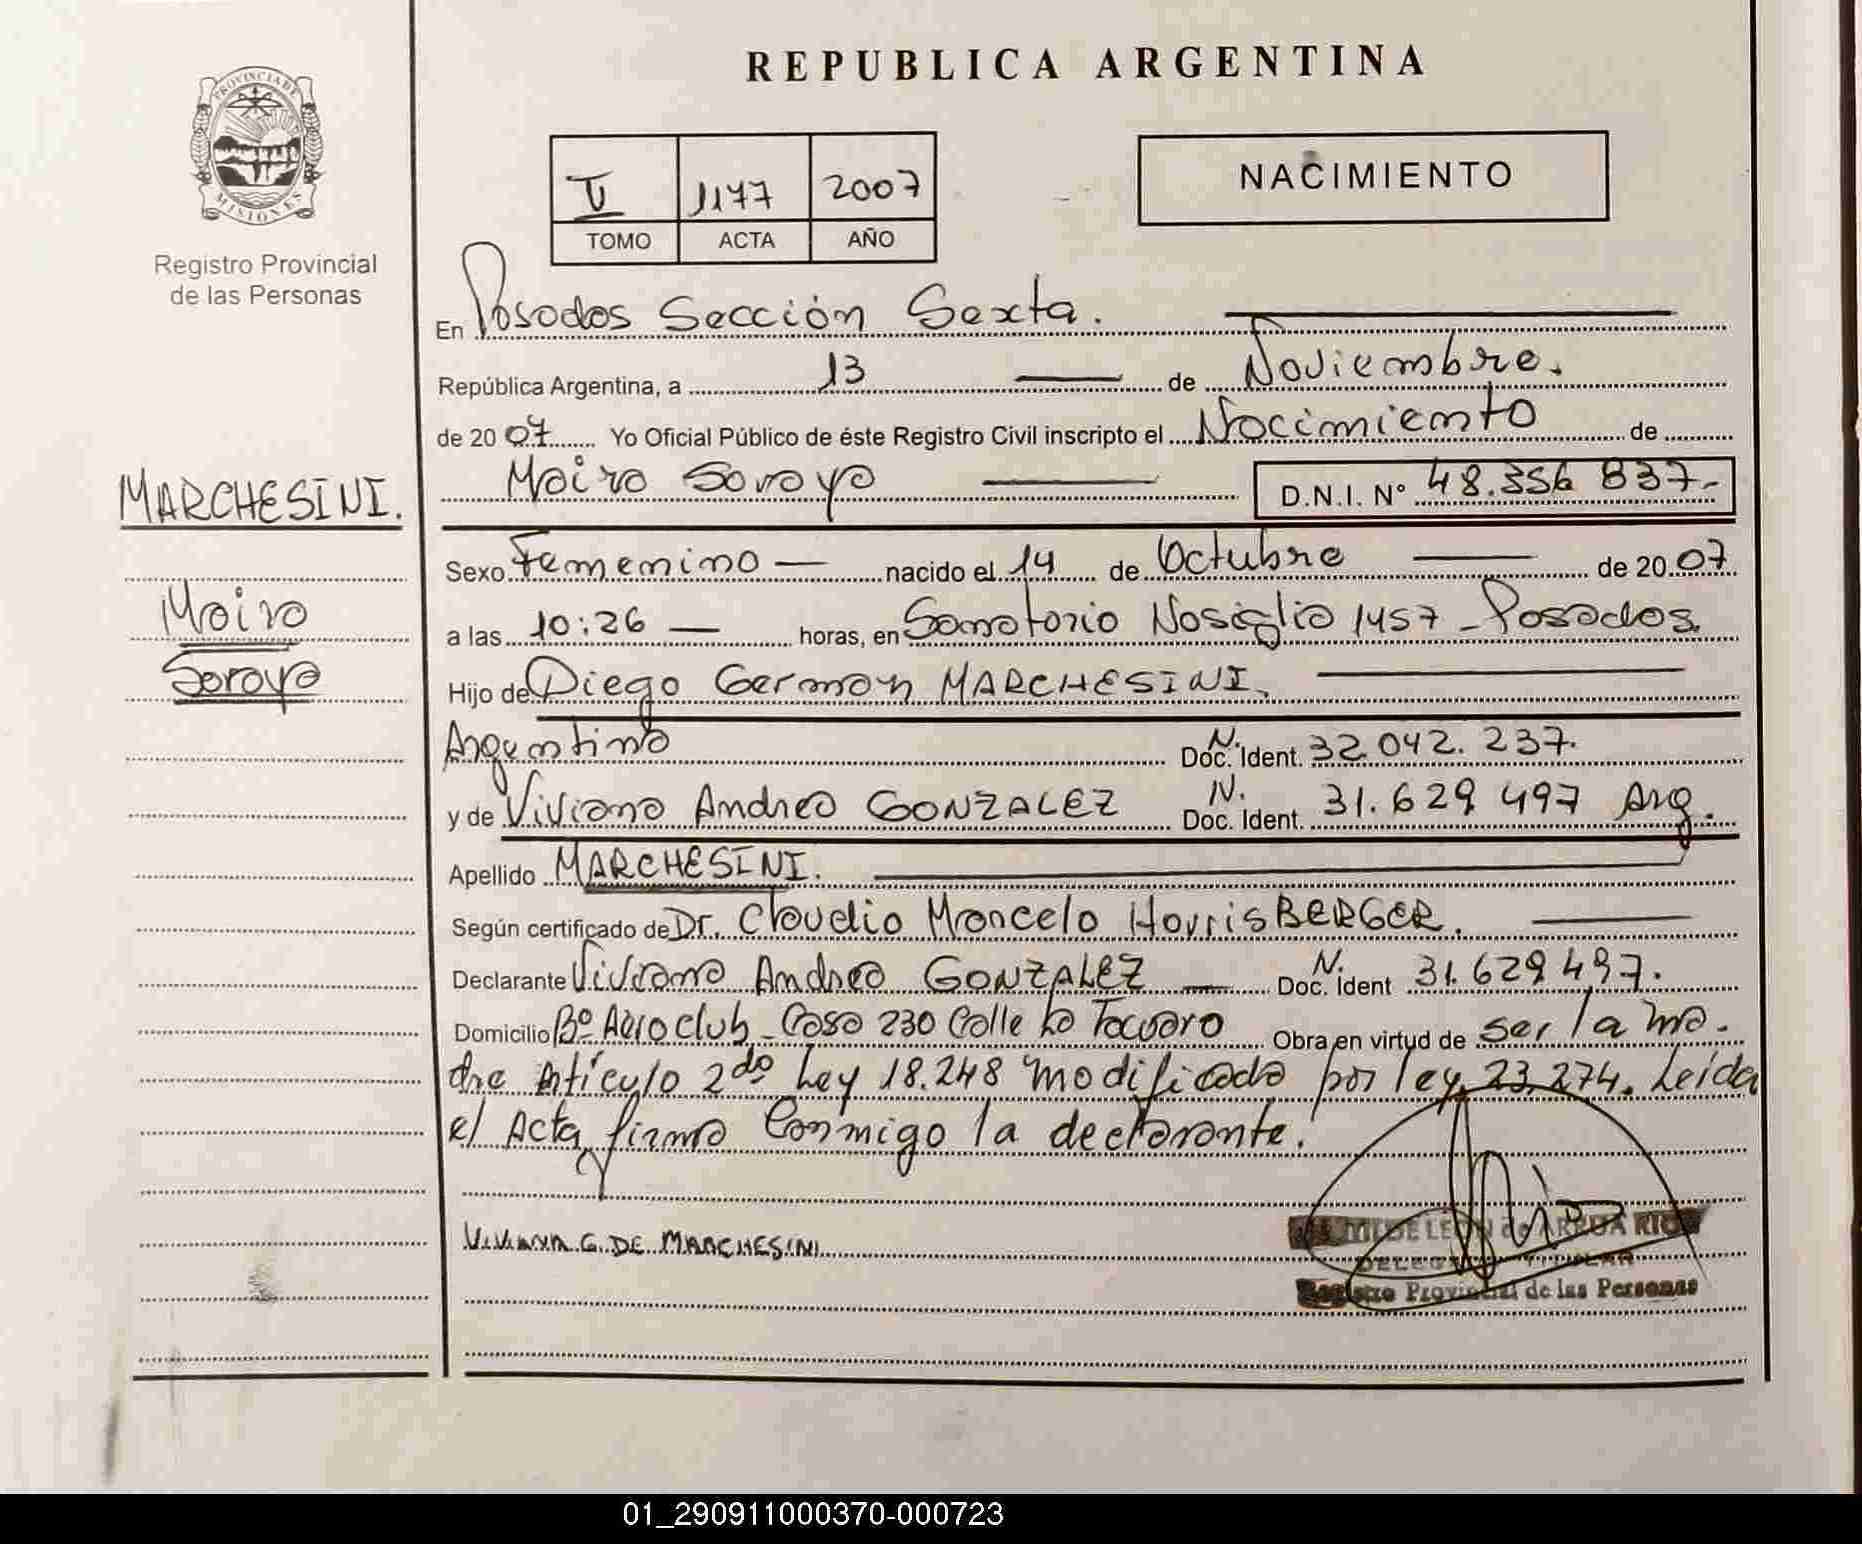 REPUBLICA ARGENTINA
PROVINCIA DE
MISIONES
Registro Provincial
de las Personas
1177 2007
TOMO ACTA AÑO
NACIMIENTO
En Posadas Sección Sexta.
República Argentina, a 13 de Noviembre.
de 2007 Yo Oficial Público de éste Registro Civil inscripto el Nacimiento de
Maira Soraya D.N.I. N° 48.356 837-
MARCHESINI.
Maira
Soraya
Sexo Femenino — nacido el 14 de Octubre — de 2007
a las 10:26 — horas, en Sanatorio Nosiglia 1457 - Posadas
Hijo de Diego German MARCHESINI.
Argentina N. Doc. Ident. 32 042. 237.
y de Viviana Andrea GONZALEZ N. Doc. Ident. 31. 629 497 Arg.
Apellido MARCHESINI.
Según certificado de Dr. Claudio Marcelo HourisBERGER.
Declarante Viviana Andrea GONZALEZ — N. Doc. Ident 31. 629 497.
Domicilio B° Aeroclub - Casa 230 Calle La Tacuara Obra en virtud de ser la ma-
dre Artículo 2do Ley 18.248 modificada por ley 23.274. Leída
el Acta firma conmigo la declarante.
VIVIANA G. DE MARCHESINI
DE LEON de ARRUA RIOS
TITULAR
Registro Provincial de las Personas
01_290911000370-000723